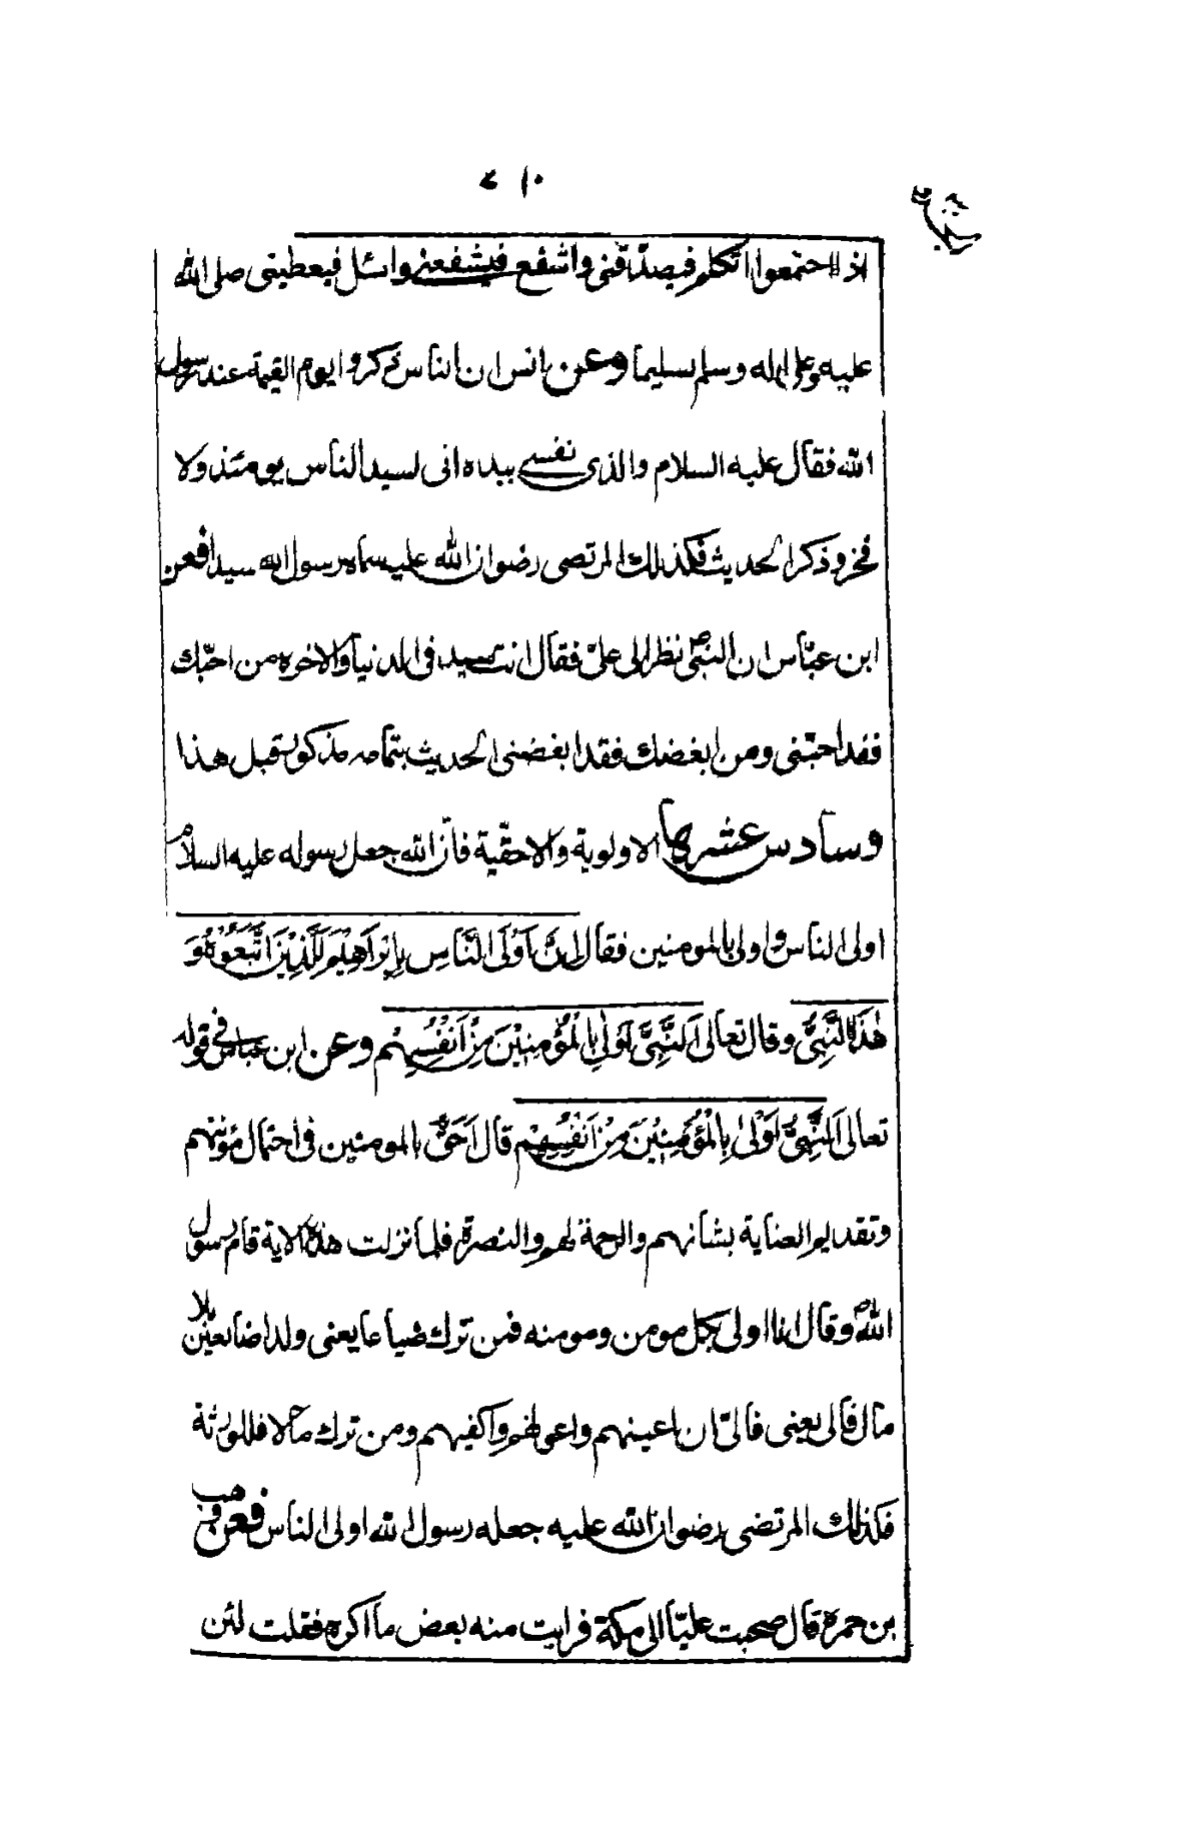 ١٠٧
اذا اجتمعوا اتكلم فيصدّقنى واشفع فيشفعنى واسئل فيعطينى صلى الله
عليه وعلى اله وسلم تسليما وعن انس ان الناس ذكروا يوم القيمة عند رسول
الله فقال عليه السلام والذى نفسى بيده انى لسيد الناس يومئذ ولا
فخر وذكر الحديث فكذلك المرتضى رضوان الله عليه سماه رسول الله سيدا فعن
ابن عبّاس ان النبىّ ص نظر الى علىّ فقال انت سيد فى الدنيا والاخره من احبّك
فقد احبّنى ومن ابغضك فقد ابغضنى الحديث بتمامه مذكور قبل هذا
وسادس عشرها الاولوية والاحقّية فانّ الله جعل رسوله عليه السلام
اولى الناس واولى بالمومنين فقال اِنَّ اَوْلَى النَّاسِ بِاِبْرَاهِيْمَ لَلَّذِيْنَ اتَّبَعُوْهُ وَ
هٰذَا النَّبِىُّ وقال تعالى اَلنَّبِىُّ اَوْلٰى بِالْمُؤْمِنِيْنَ مِنْ اَنْفُسِهِمْ وعن ابن عباس فى قوله
تعالى اَلنَّبِىُّ اَوْلٰى بِالْمُؤْمِنِيْنَ مِنْ اَنْفُسِهِمْ قال اَحَقُّ بالمومنين فى احتمال مؤنتهم
وتقديم العناية بشانهم والرحمة لهم والنصرة فلما نزلت هذه الاية قام رسول
الله ص وقال انا اولى بكل مومن ومومنه فمن ترك ضياعا يعنى ولدا ضايعين بلا
مال فالى يعنى فالىّ ان اعينهم واعولهم واكفيهم ومن ترك مالا فللورثة
فكذلك المرتضى رضوان الله عليه جعله رسول الله اولى الناس فعن وهب
بن حمزة قال صحبت عليّا الى مكة فرايت منه بعض ما اكره فقلت لئن